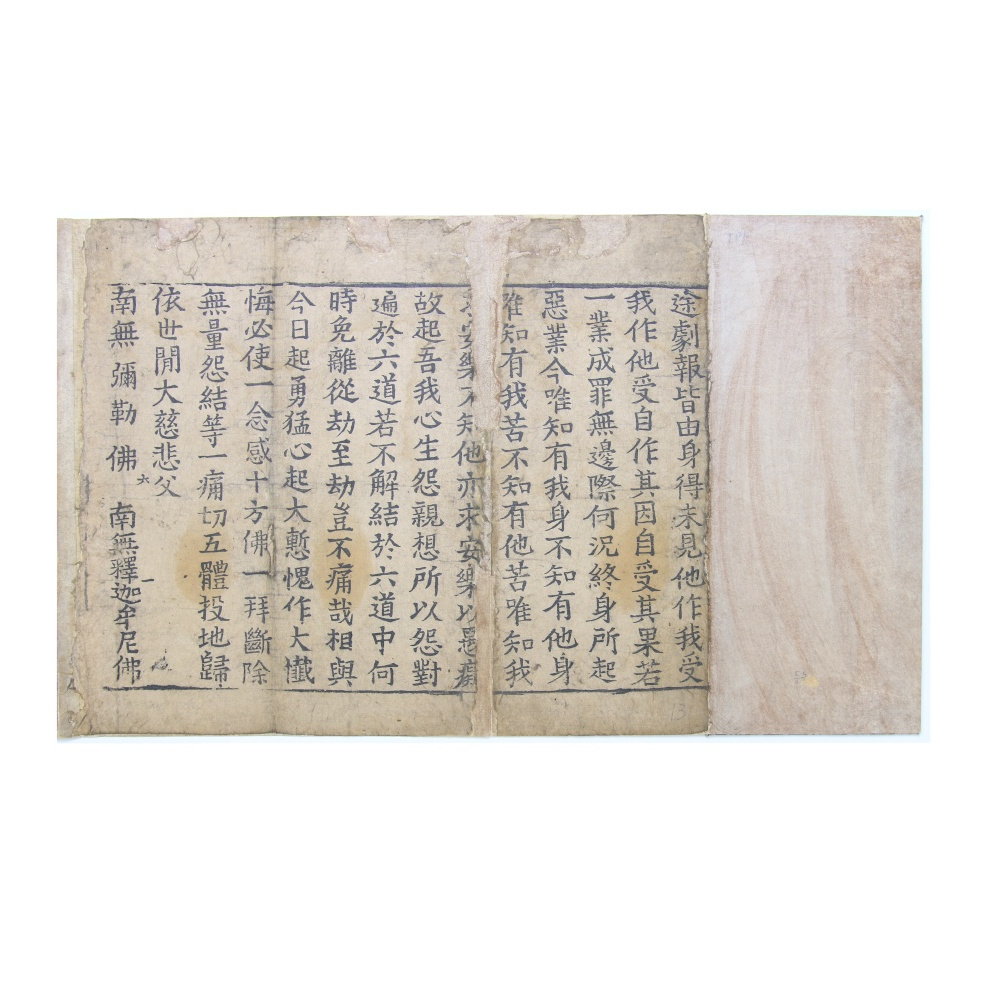 途劇報皆由身得未見他作我受
我作他受自作其因自受其果若
一業成罪無邊際何況終身所起
惡業今唯知有我身不知有他身
唯知有我苦不知有他苦唯知我
求安樂不知他亦求安樂以愚癡
故起吾我心生怨親想所以怨對
遍於六道若不解結於六道中何
時免離從劫至劫豈不痛哉相與
今日起勇猛心起大慙愧作大懺
悔必使一念感十方佛一拜斷除
無量怨結等一痛切五體投地歸
依世閒大慈悲父
南無彌勒佛 南無釋迦牟尼佛
六
一